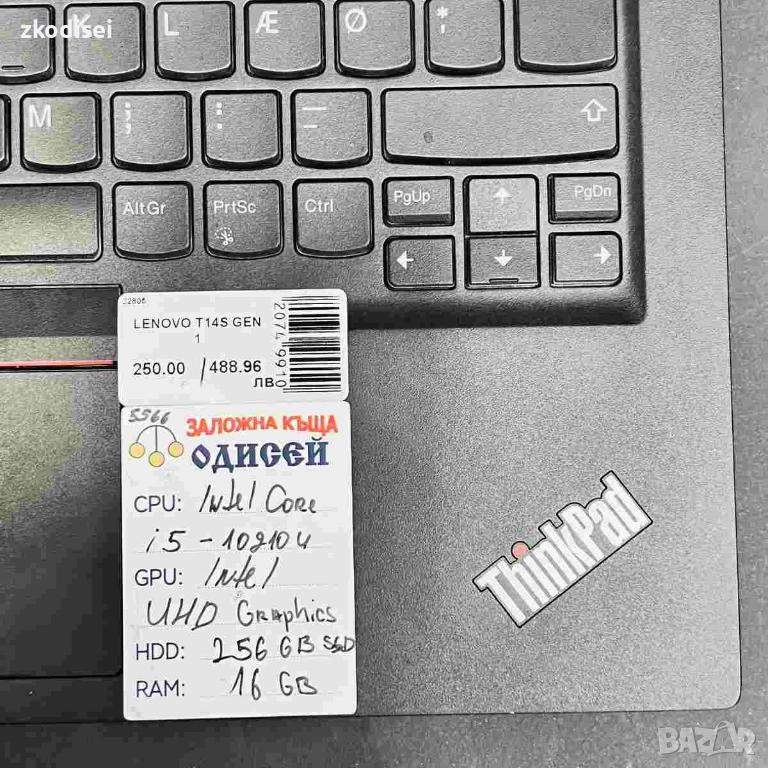 zkodisei
K L Æ Ø ' *
M ; , : . _ -
AltGr PrtSc Ctrl PgUp PgDn
LENOVO T14S GEN
1
250.00 / 488.96
ЛВ
2074 9910
5566
ЗАЛОЖНА КЪЩА
ОДИСЕЙ
CPU: Intel Core
i5 - 10210u
GPU: Intel
UHD Graphics
HDD: 256 GB SSD
RAM: 16 GB
ThinkPad
BAZAR